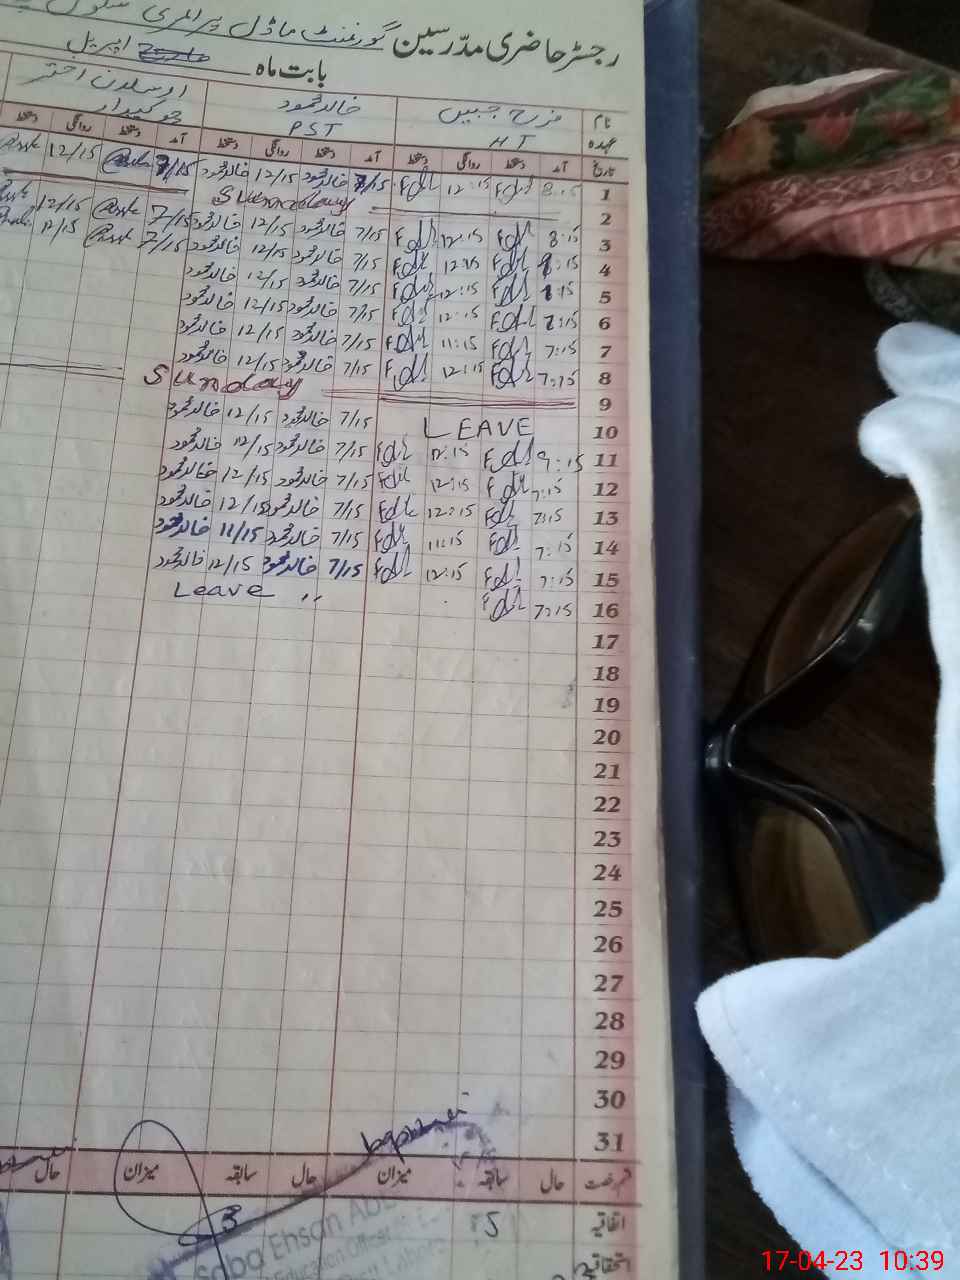 رجسٹر حاضری مدرسین گورنمنٹ ماڈل پرائمری سکول
بابت ماہ اپریل
نام فرح جبیں خالد محمود
عہدہ HT PST چوکیدار
تاریخ آمد دستخط روانگی دستخط آمد دستخط روانگی دستخط آمد دستخط روانگی دستخط
1 8:15 12:15 7/15 خالد محمود 12/15 خالد محمود 7/15 12/15
2 Sunday
3 8:15 12:15 7/15 خالد محمود 12/15 خالد محمود 7/15 12/15
4 8:15 12:15 7/15 خالد محمود 12/15 خالد محمود 7/15 12/15
5 8:15 12:15 7/15 خالد محمود 12/15 خالد محمود
6 7:15 12:15 7/15 خالد محمود 12/15 خالد محمود
7 7:15 11:15 7/15 خالد محمود 12/15 خالد محمود
8 7:15 12:15 7/15 خالد محمود 12/15 خالد محمود
9 Sunday
10 LEAVE 7/15 خالد محمود 12/15 خالد محمود
11 9:15 12:15 7/15 خالد محمود 12/15 خالد محمود
12 7:15 12:15 7/15 خالد محمود 12/15 خالد محمود
13 7:15 12:15 7/15 خالد محمود 12/15 خالد محمود
14 7:15 11:15 7/15 خالد محمود 11/15 خالد محمود
15 7:15 12:15 7/15 خالد محمود 12/15 خالد محمود
16 7:15 Leave
17
18
19
20
21
22
23
24
25
26
27
28
29
30
31
رخصت حال سابقہ میزان حال سابقہ میزان حال
اتفاقیہ 5 3
استحقاقیہ
Saba Ehsan
Education Officer
17-04-23 10:39